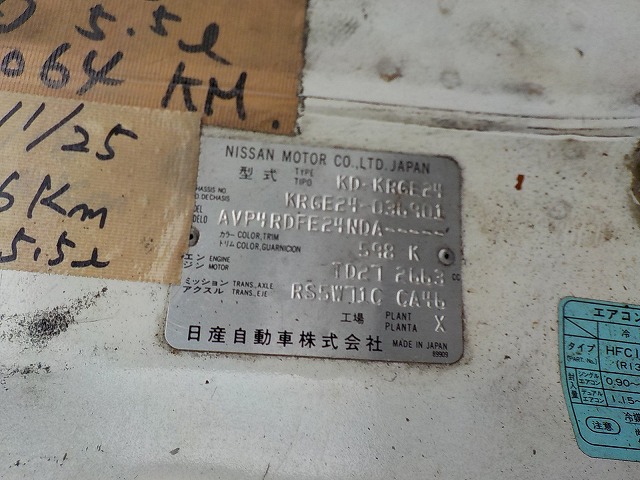 5.5ℓ
064 KM.
11/25
6Km
5.5ℓ
NISSAN MOTOR CO.,LTD. JAPAN
型式 TYPE TIPO KD-KRGE24
CHASSIS NO. NO. DE CHASIS KRGE24-036901
AVP4RDFE24NDA-----
カラー COLOR,TRIM
トリム COLOR,GUARNICION 598 K
エンジン ENGINE MOTOR TD27 2663 CC
ミッション TRANS.,AXLE
アクスル TRANS.,EJE RS5W71C CA46
工場 PLANT PLANTA X
日産自動車株式会社 MADE IN JAPAN
89909
エアコン
冷
タイプ HFC1
(PART. No.) (R13
シングルエアコン 0.90~
デュアルエアコン 1.15~
封入量
注意